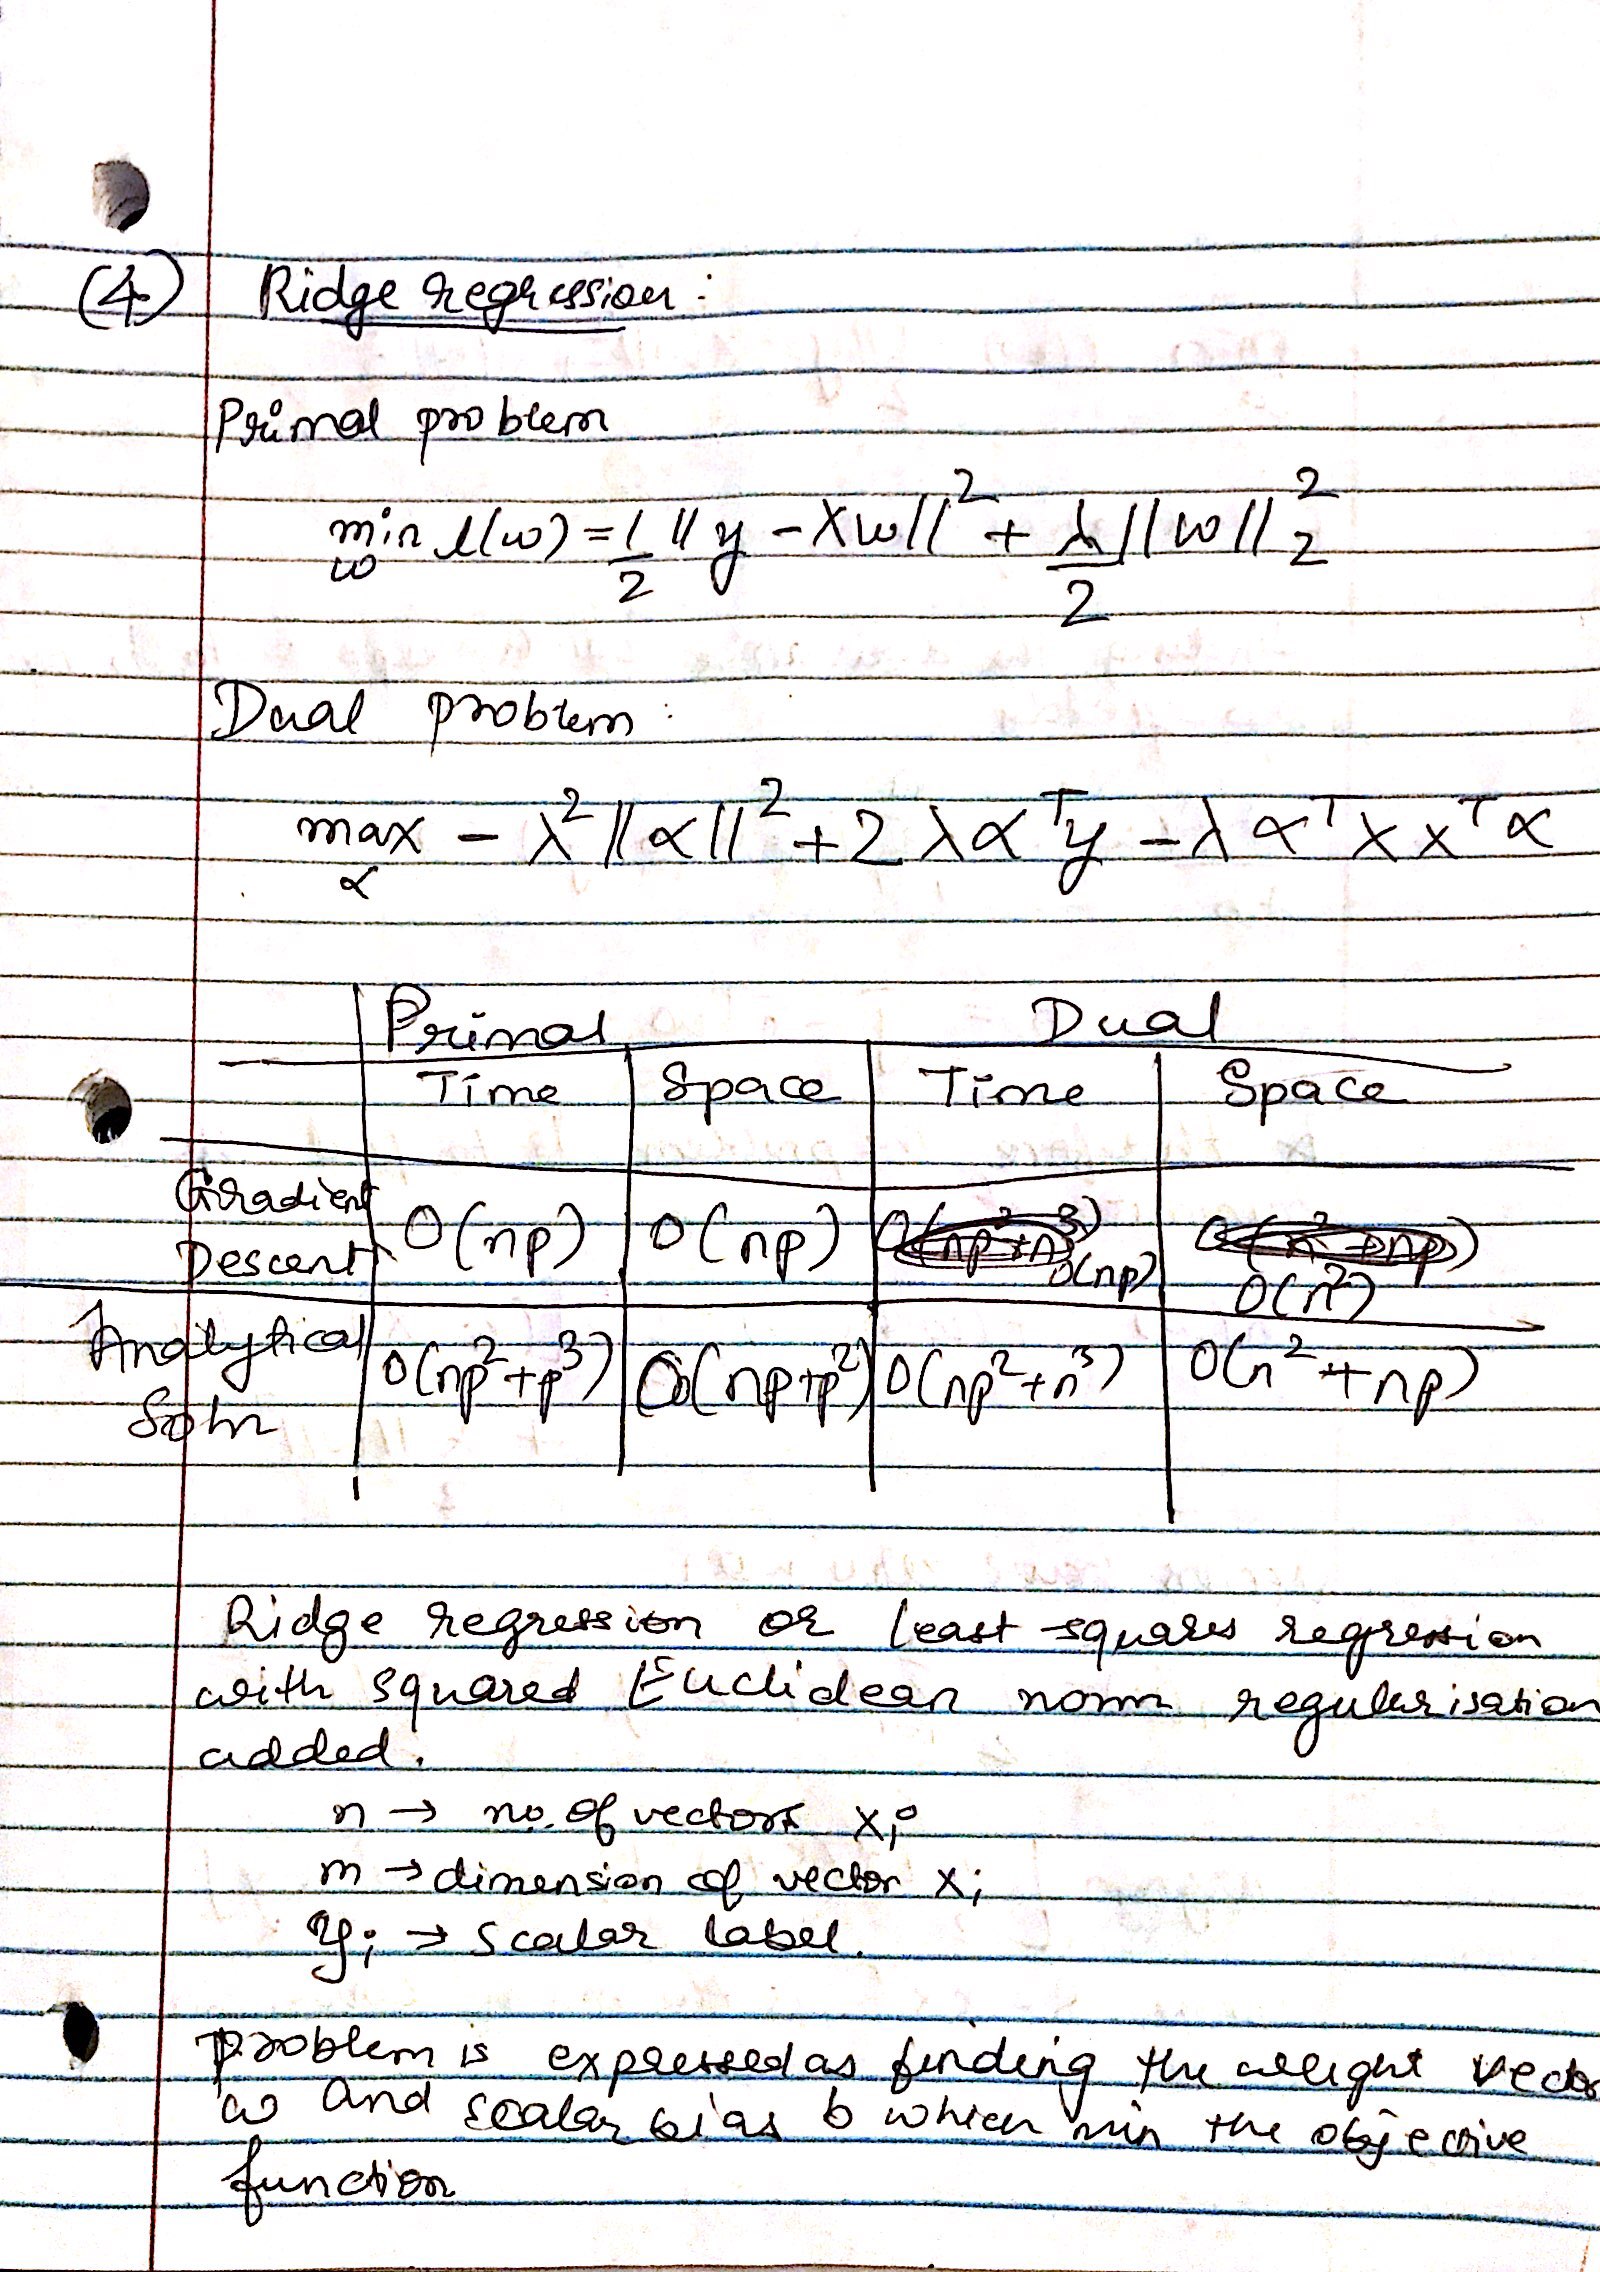 (4) Ridge regression:
Primal problem
min l(w) = 1/2 ||y - Xw||² + λ/2 ||w||₂²
w
Dual problem:
max - λ²||α||² + 2λαᵀy - λαᵀXXᵀα
α
Primal Dual
Time Space Time Space
Gradient Descent O(np) O(np) O(np) O(n²)
Analytical Soln O(np²+p³) O(np+p²) O(np²+n³) O(n²+np)
Ridge regression or least squares regression
with squared Euclidean norm regularisation
added.
n → no. of vectors xi
m → dimension of vector xi
yi → scalar label.
problem is expressed as finding the weight vector
w and scalar bias b which min the objective
function